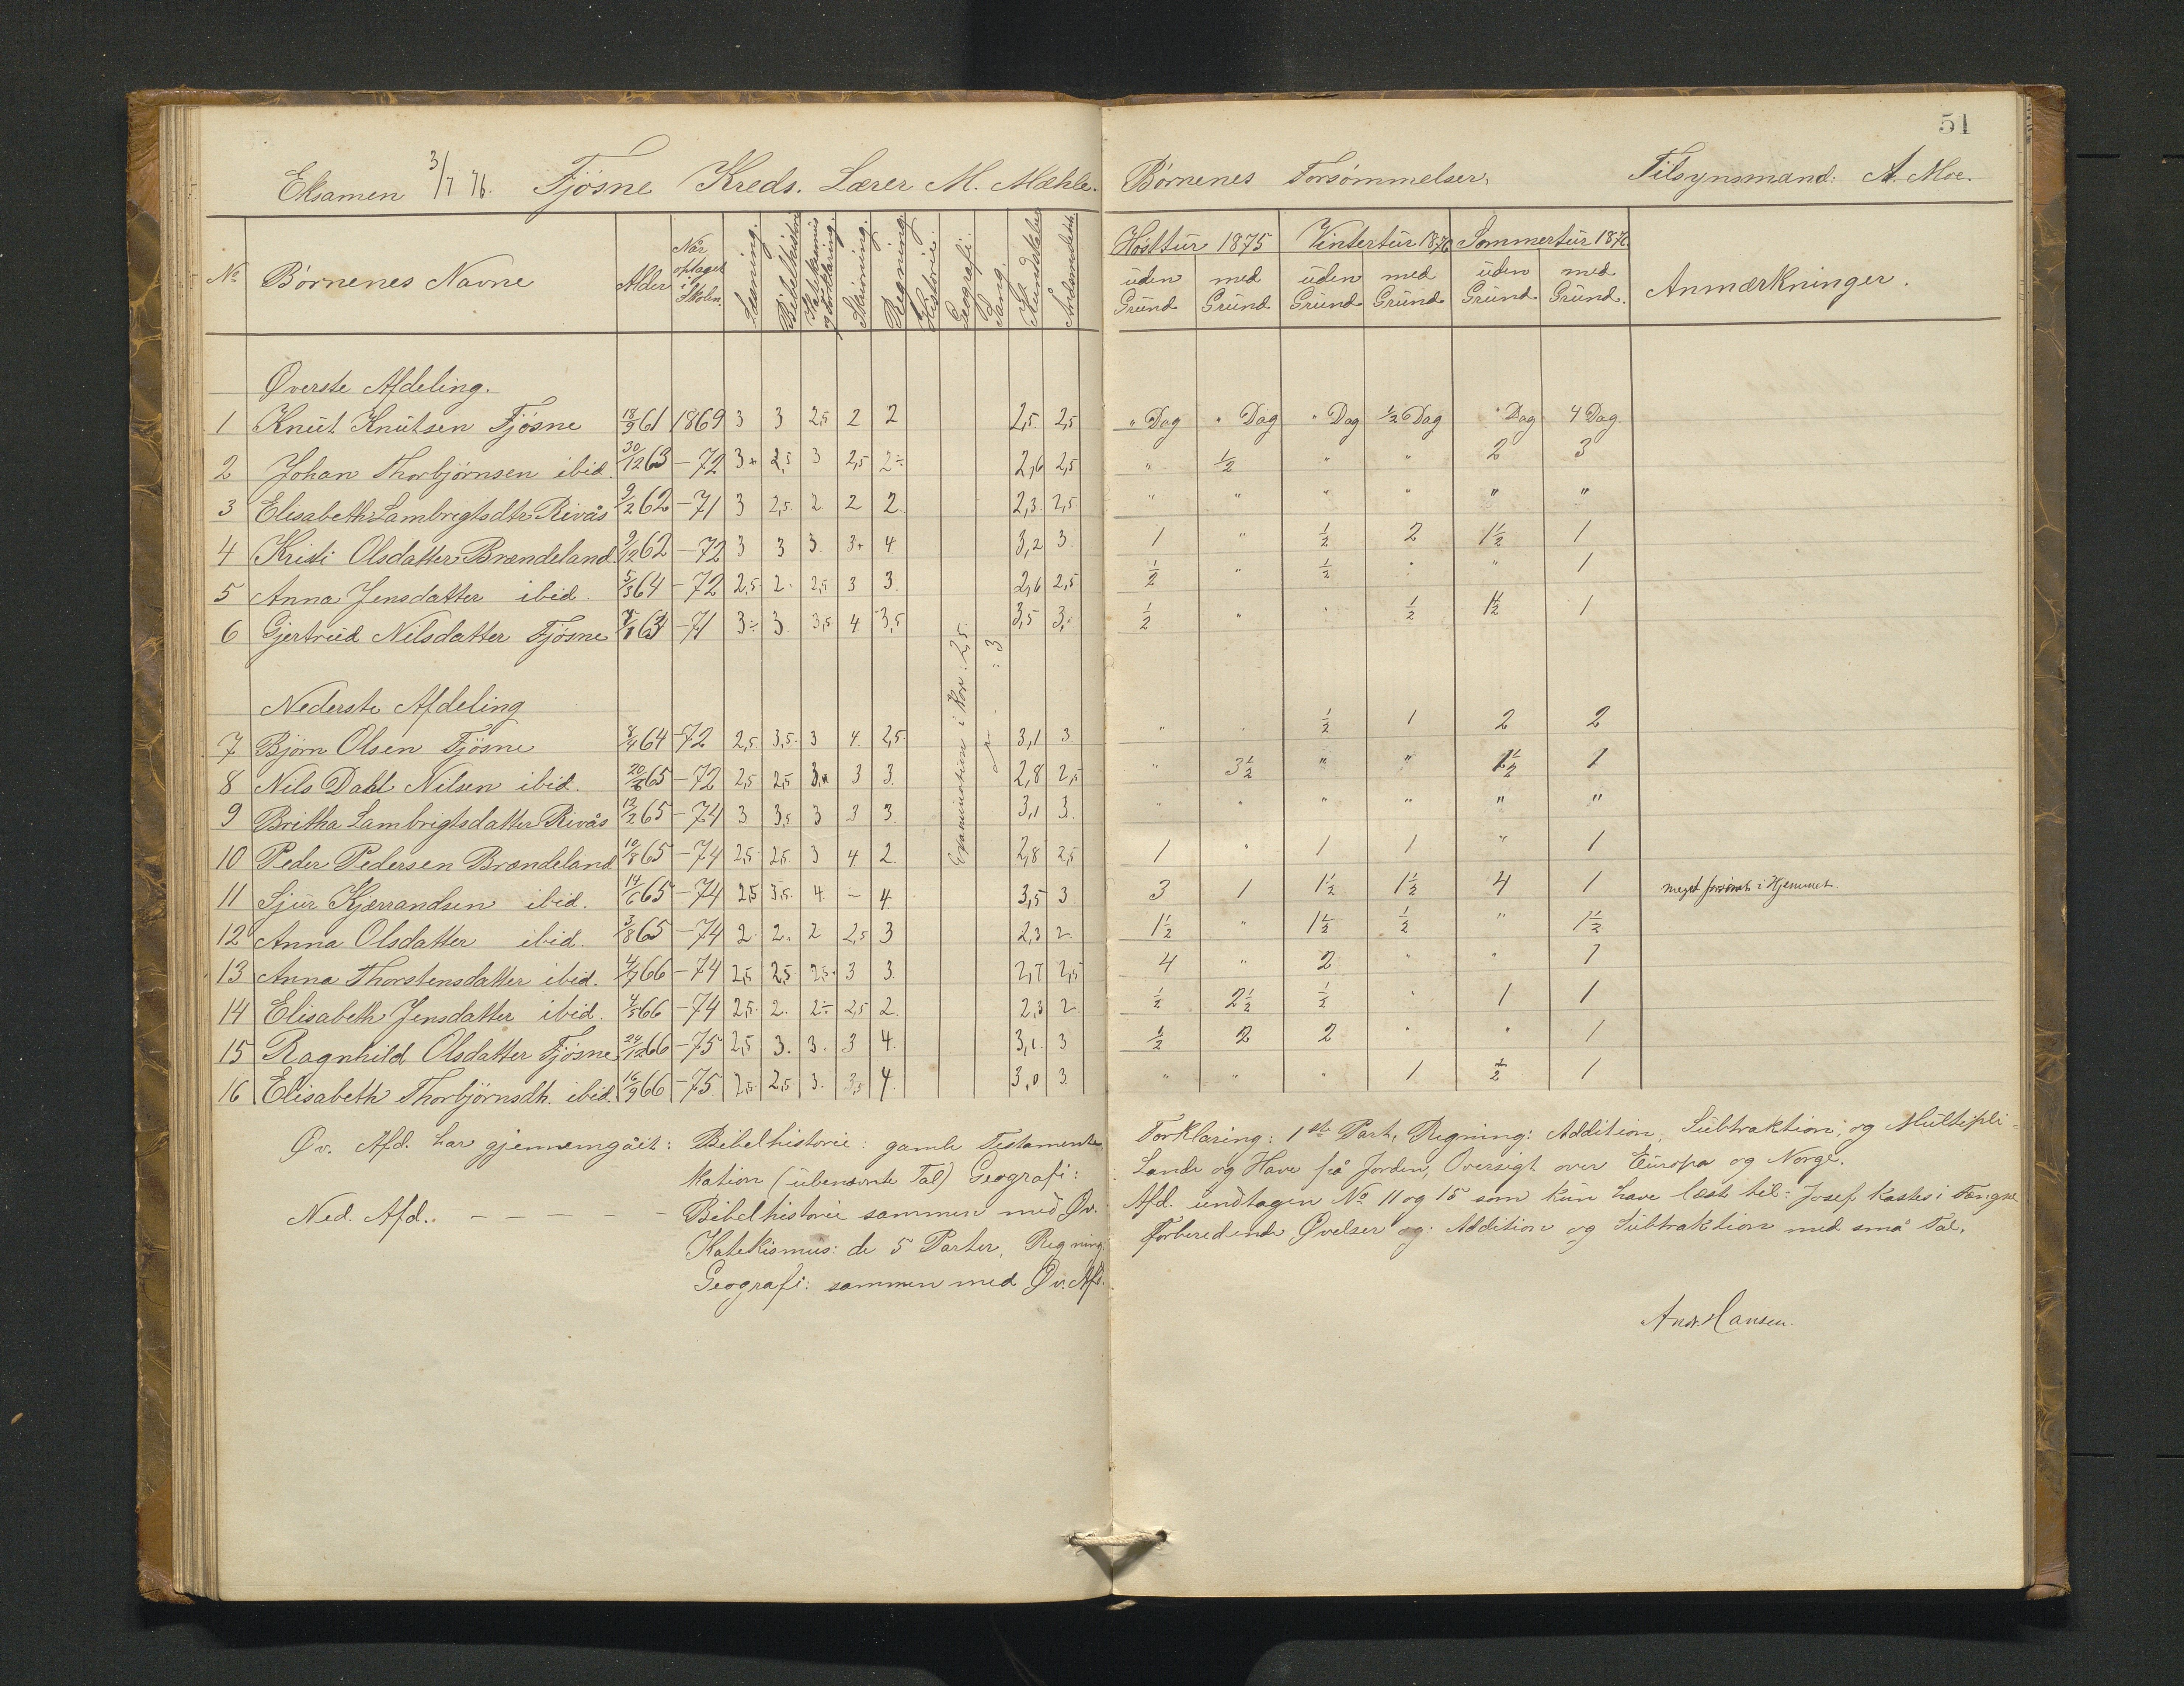 51
Eksamen 3/7 76. Fjøsne Kreds. Lærer M. Mæhle. Børnenes Forsømmelser. Tilsynsmand: A. Moe.
No Børnenes Navne Alder Når optaget i Skolen. Læsning. Bibelhistorie Katekismus og Forklaring. Skrivning. Regning. Historie. Geografi. Sang. Kundskaber Høsttur 1875 uden Grund med Grund Vintertur 1876 uden Grund med Grund Sommertur 1876 uden Grund med Grund. Anmærkninger.
Øverste Afdeling.
1 Knut Knutsen Fjøsne 18/9 61 1869 3 3 2,5 2 2 2,5 2,5 " Dag " Dag " Dag ½ Dag " Dag 4 Dag
2 Johan Thorbjørnsen ibid. 30/12 63 -72 3+ 2,5 3 2,5 2÷ 2,6 2,5 " ½ " " 2 3
3 Elisabeth Lambrigtsdtr Rivås 9/2 62 -71 3 2,5 2 2 2 2,3 2,5 " " " " " "
4 Kristi Olsdatter Brændeland 9/12 62 -72 3 3 3 3+ 4 3,2 3 1 " ½ 2 1½ 1
5 Anna Jensdatter ibid. 5/3 64 -72 2,5 2 2,5 3 3 2,6 2,5 ½ " ½ " " 1
6 Gjertrud Nilsdatter Fjøsne 63 -71 3÷ 3 3,5 4 3,5 3,5 3 ½ " " ½ 1½ 1
Examination i Kor: 2,5
" : 3
Nederste Afdeling
7 Bjørn Olsen Fjøsne 8/4 64 -72 2,5 3,5 3 4 2,5 3,1 3 " " ½ 1 2 2
8 Nils Dahl Nilsen ibid. 65 -72 2,5 2,5 3 3 3 2,8 2,5 " 3½ " " 1½ 1
9 Britha Lambrigtsdatter Rivås 12/2 65 -74 3 3,5 3 3 3 3,1 3 " " " " " "
10 Peder Pedersen Brændeland 10/8 65 -74 2,5 2,5 3 4 2 2,8 2,5 1 " 1 1 " 1
11 Sjur Kjærrandsen ibid. 14/6 65 -74 2,5 3,5 4 - 4 3,5 3 3 1 1½ 1½ 4 1 meget forsømt i Hjemmet.
12 Anna Olsdatter ibid. 3/8 65 -74 2 2 2 2,5 3 2,3 2 1½ " 1½ ½ " 1½
13 Anna Thorstensdatter ibid. 66 -74 2,5 2,5 2,5 3 3 2,7 2,5 4 " 2 " " 1
14 Elisabeth Jensdatter ibid. 4/5 66 -74 2,5 2 2÷ 2,5 2 2,3 2 ½ 2½ ½ " 1 1
15 Ragnhild Olsdatter Fjøsne 66 -75 2,5 3 3 3 4 3,1 3 ½ 2 2 " " 1
16 Elisabeth Thorbjørnsdtr. ibid. 16/9 66 -75 2,5 2,5 3 3,5 4 3,0 3 " " " 1 ½ 1
Øv. Afd. har gjennemgået: Bibelhistorie: gamle Testamente Forklaring: 1ste Part, Regning: Addition, Subtraktion, og Multipli-
kation (ubenævnte Tal) Geografi: Lande og Have på Jorden, Oversigt over Europa og Norge.
Ned. Afd. - - - - - - Bibelhistorie sammen med Øv. Afd. undtagen No 11 og 15 som kun have læst til: Josef kastes i Fængsel
Katekismus: de 5 Parter, Regning: Forberedende Øvelser og: Addition og Subtraktion med små Tal,
Geografi: sammen med Øv. Afd.
Andr. Hansen.